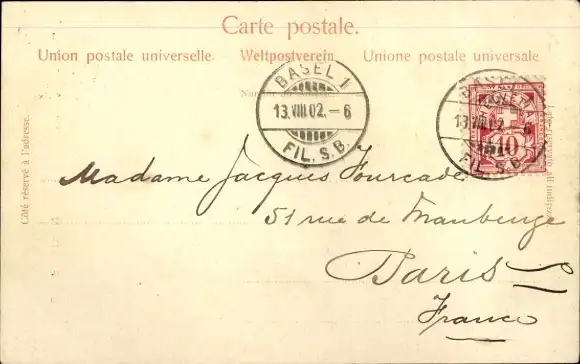 Carte postale.
Union postale universelle. Weltpostverein. Unione postale universale
Côté réservé à l'adresse.
BASEL 1
13.VIII.02.-6
FIL. S.B.
13.VIII.02.-6
FIL. S.B.
10
Madame Jacques Fourcade
51 rue de Maubeuge
Paris
France